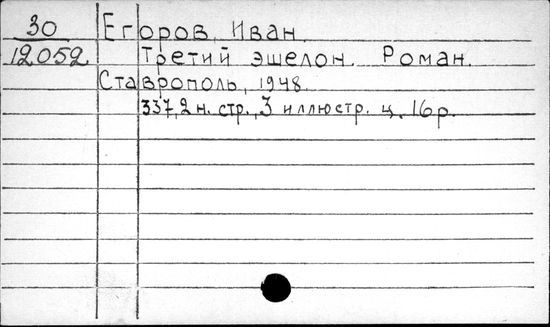 30 Егоров, Иван.
12052 Третий эшелон. Роман.
Ставрополь, 1948.
337,2 н. стр., 3 иллюстр. ц. 16 р.